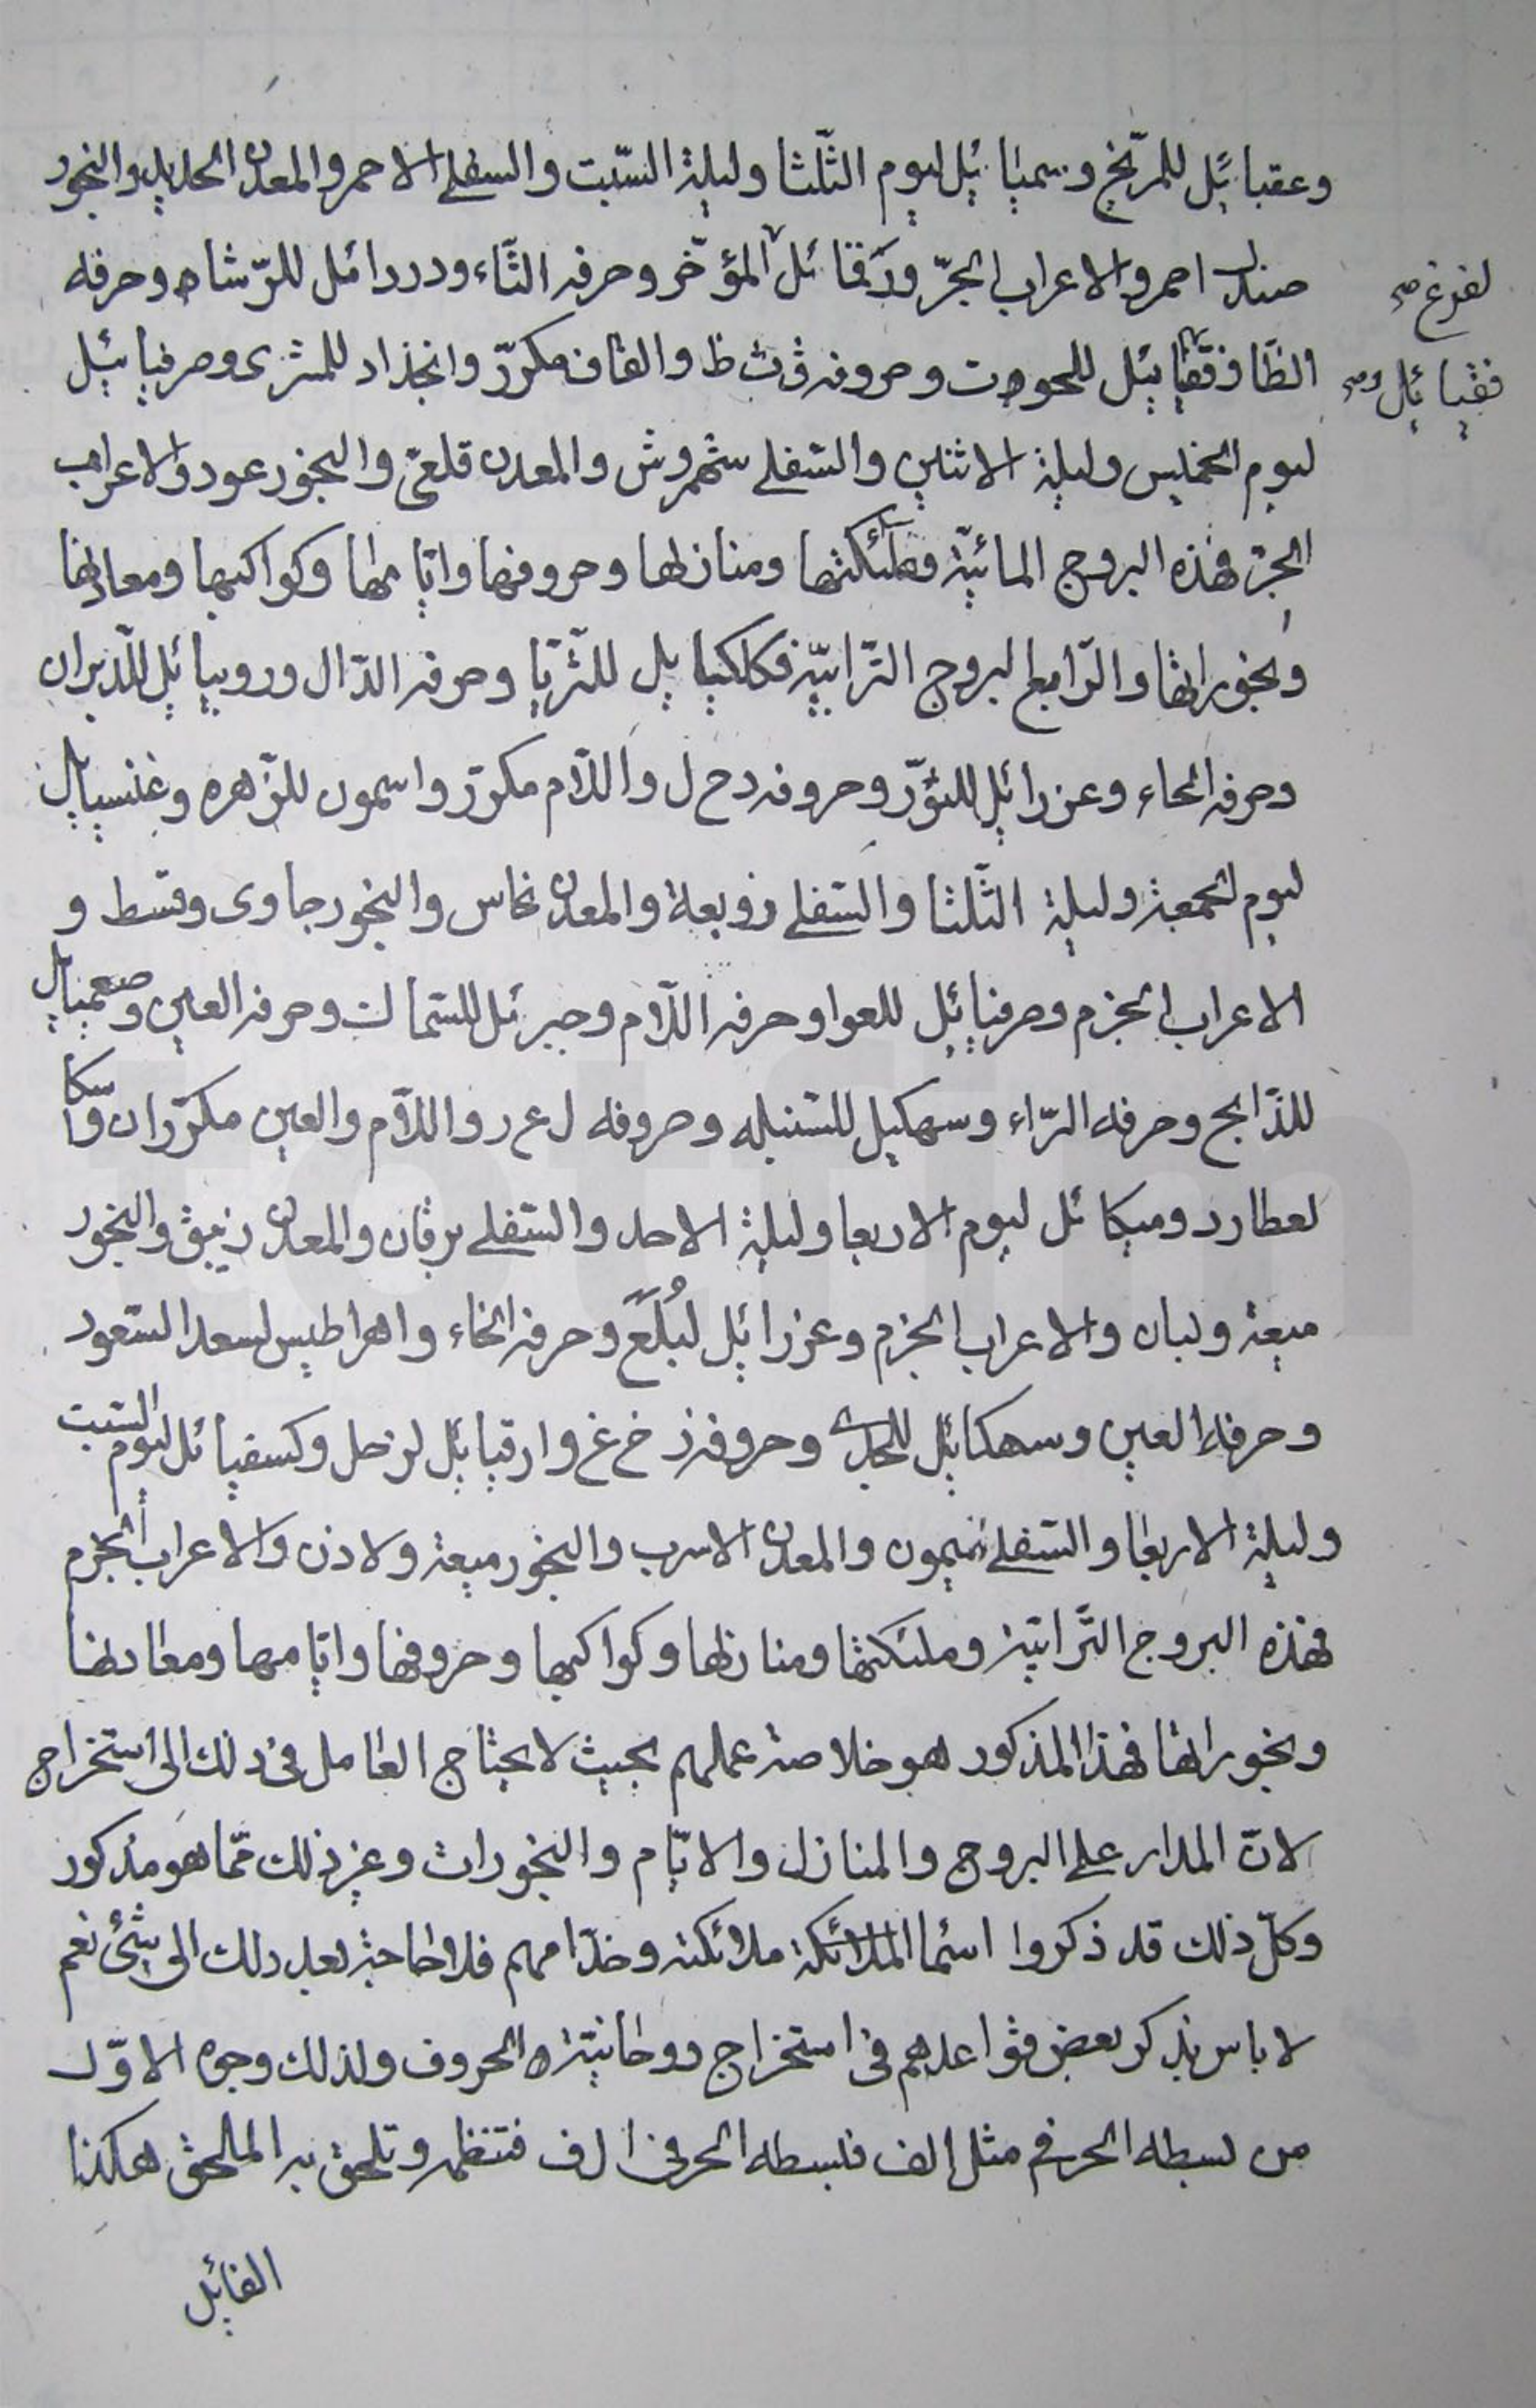 وعقبائيل للمرّيخ وسميائيل ليوم الثّلثا وليلة السّبت والسفلے الاحمر والمعدن الحديد والبخور
صندل احمر والاعراب الجرّ ودَقائل المؤخّر وحرفه الثّاء ودردائل للرّشاه وحرفه
لفرغ صح
الظّا وفقيائيل للحوت وحروفه ق ث ظ والقاف مكرّر وانجذاد للمشرى وصرفيائيل
فقيائل صح
ليوم الخميس وليلة الاثنين والسّفلے شمهروش والمعدن قلعىّ والبخور عود والاعراب
الجرّ فهذه البروج المائيّة وملئكتها ومنازلها وحروفها وايّامها وكواكبها ومعادنها
وبخوراتها والرّابع البروج التّرابيّة فكلكيايل للثّريّا وحرفه الدّال وروبيائيل للّدبران
وحرفه الحاء وعزرائيل للثّور وحروفه د ح ل واللّام مكرّر واسمون للزّهره وعنسيايل
ليوم الجمعة وليلة الثّلثا والسّفلے زوبعة والمعدن نحاس والبخور جاوى وقسط و
الاعراب الجزم وصرفيائيل للعوا وحرفه اللّام وجبرئل للسّماك وحرفه العين وصعميايل
للذّابح وحرفه الرّاء وسهكيل للسّنبله وحروفه ل ع ر واللّام والعين مكرّران و
لعطارد وميكائل ليوم الاربعا وليلة الاحد والسّفلے برقان والمعدن زيبق والبخور
ميعة ولبان والاعراب الجزم وعزرائيل لبُلَعَ وحرفه الخاء واهراطيس لسعد السّعود
وحرفه العين وسهكائيل للجدى وحروفه ز خ غ وارقيائيل لزحل وكسفيائل ليوم السّبت
وليلة الاربعا والسّفلے ميمون والمعدن الاسرب والبخور ميعة ولادن والاعراب الجزم
فهذه البروج التّرابيّة وملئكتها ومنازلها وكواكبها وحروفها وايّامها ومعادنها
وبخوراتها فهذا المذكور هو خلاصة عملهم بحيث لا يحتاج العامل فى ذلك الى استخراج
لانّ المدار على البروج والمنازل والايّام والبخورات وغير ذلك ممّا هو مذكور
وكلّ ذلك قد ذكروا اسماء الملائكة ملائكته وخدّامهم فلا حاجة بعد ذلك الى شئ نعم
لا باس بذكر بعض قواعدهم فى استخراج روحانيّة الحروف ولذلك وجوه الاوّل
من بسطه الحرفى مثل الف فبسطه الحرفى ا ل ف فتنظمه وتلحق به الملحق هكذا
الفائيل